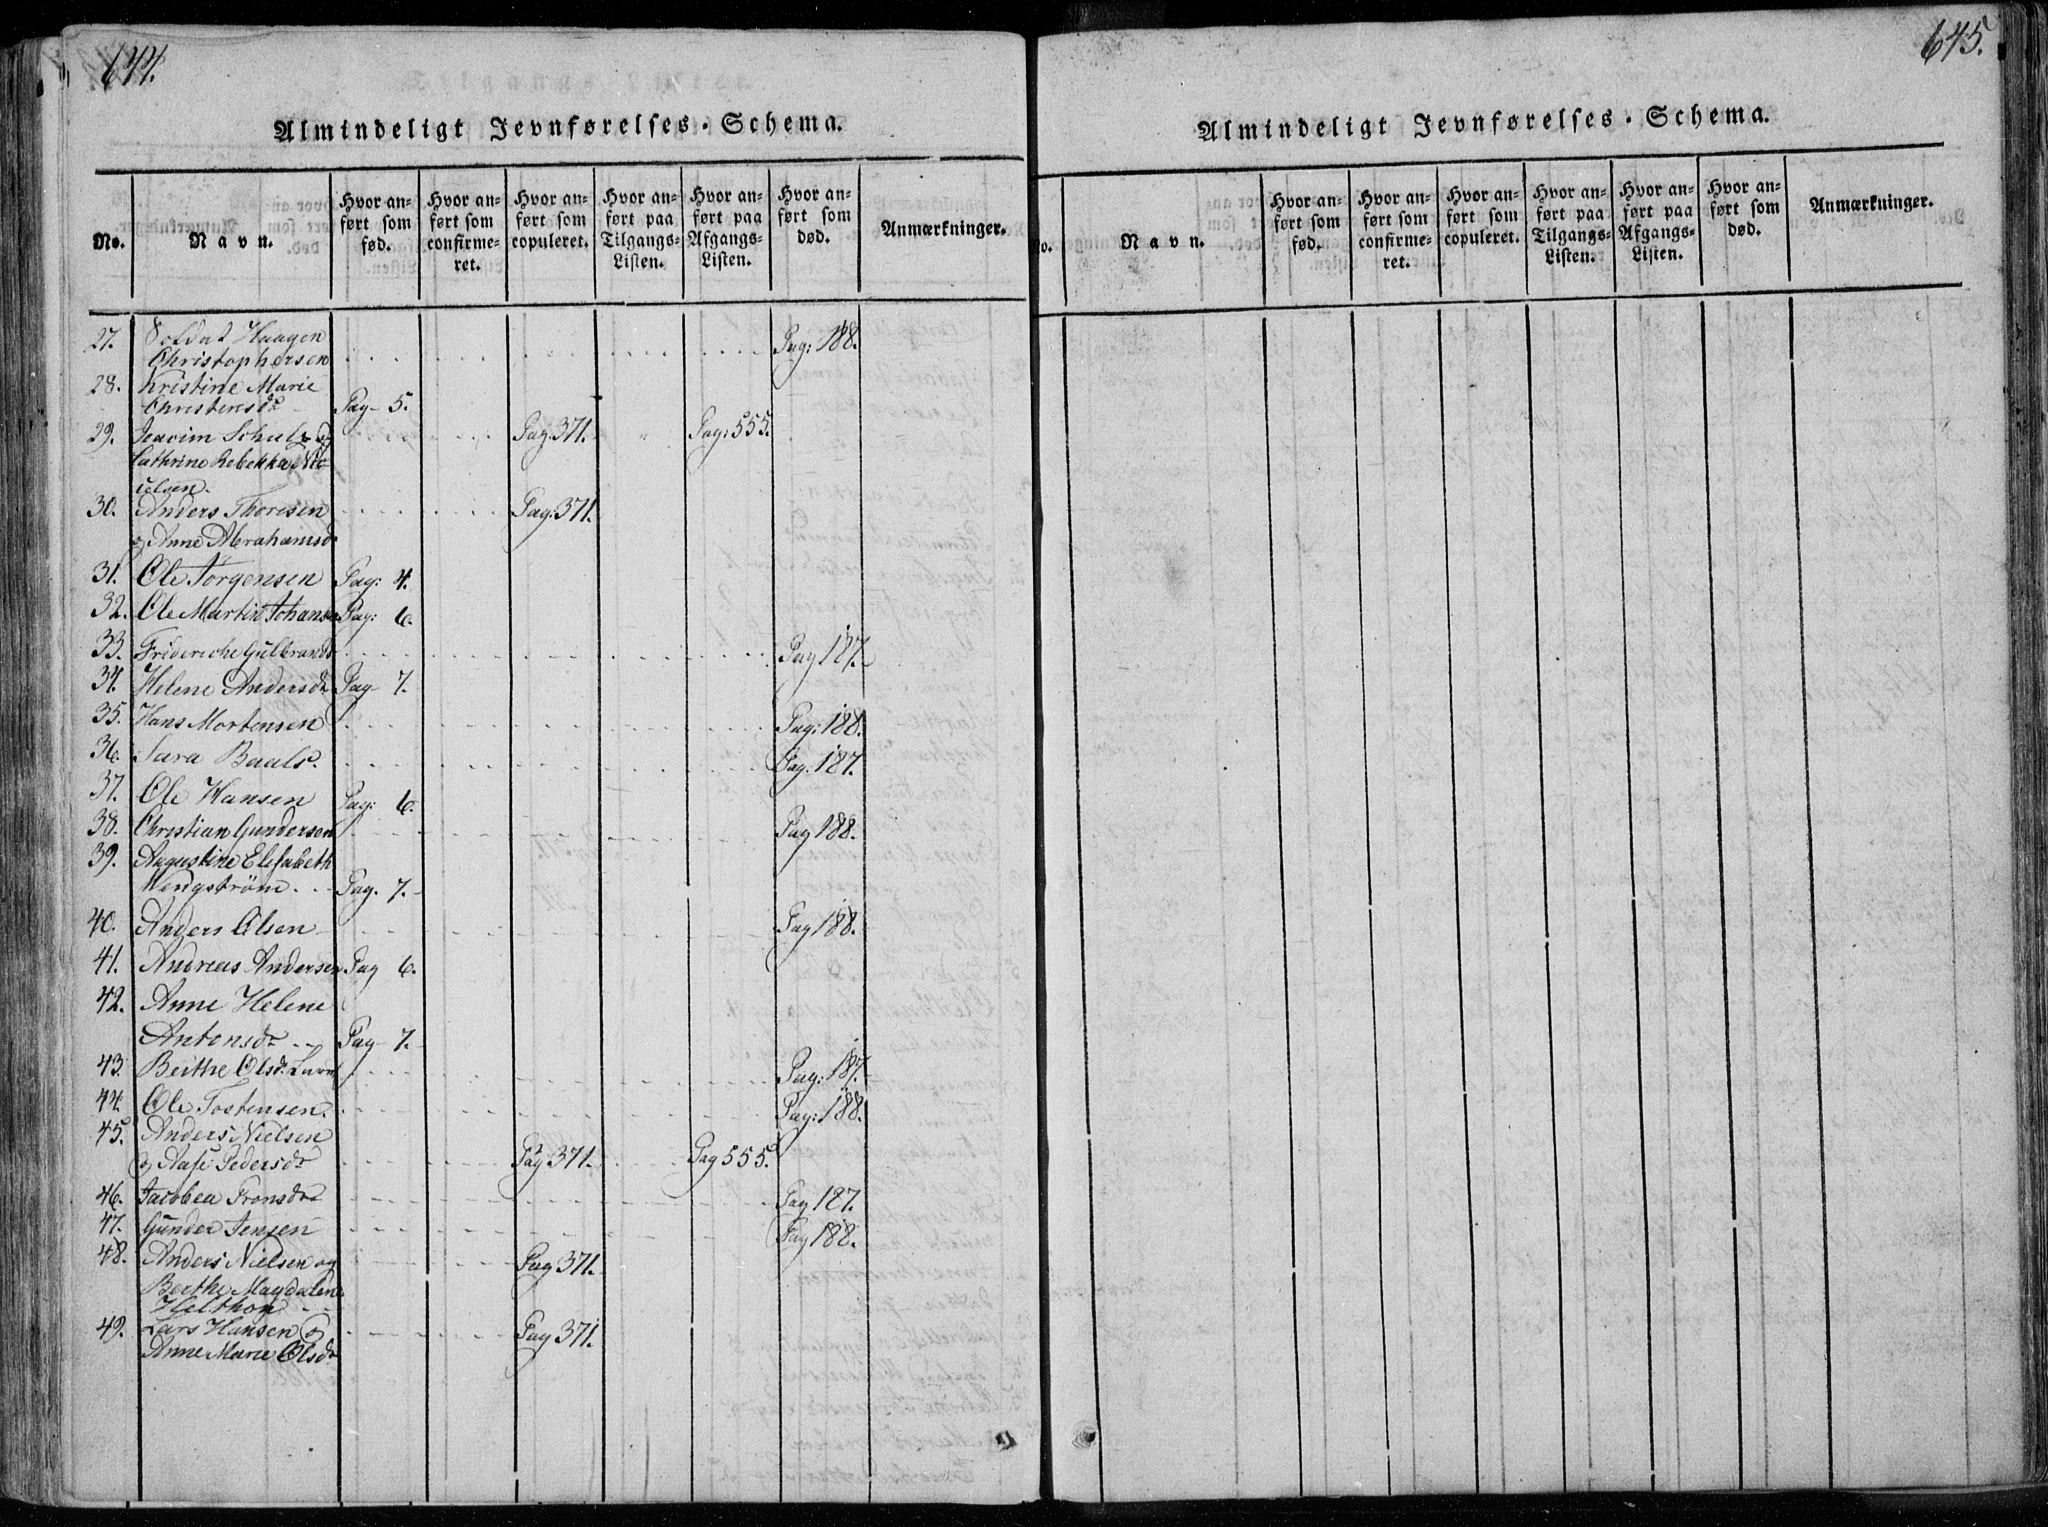 644.
Almindeligt Jevnførelses-Schema.
No.
Navn.
Hvor an-
ført som
fød.
Hvor an-
ført som
confirme-
ret.
Hvor an-
ført som
copuleret.
Hvor an-
ført paa
Tilgangs-
Listen.
Hvor an-
ført paa
Afgangs-
Listen.
Hvor an-
ført som
død.
Anmærkninger.
27. Soldat Haagen
Christophersen Pag: 188.
28. Kristine Marie
Christensdr Pag- 5.
29. Joacim Schulz og Pag. 371. Pag: 555.
Cathrine Rebekka Ni-
elsen.
30. Anders Thoresen Pag. 371.
og Anne Abrahamsd
31. Ole Jörgensen Pag: 4.
32. Ole Martin Johansen Pag: 6.
33. Frideriche Gulbrands Pag 187.
34. Helene Andersdr Pag- 7.
35. Hans Mortensen Pag: 188.
36. Sara Baals. Pag. 187.
37. Ole Hansen Pag: 6.
38. Christian Gundersen Pag 188.
39. Augustine Elisabeth
Wengström. Pag. 7.
40. Anders Olsen Pag 188.
41. Andreas Andersen Pag 6.
42. Anne Helene
Antonsdr Pag- 7.
43. Berthe Olsd. Pag: 187.
44. Ole Tostensen. Pag: 188.
45. Anders Nielsen
og Aase Pedersdr Pag 371. Pag 555.
46. Jacobea Pag 187.
47. Gunder Jensen Pag 188.
48. Anders Nielsen og Pag 371.
Berthe Magdalene
49. Lars Hansen og Pag 371.
Anne Marie Olsdr
645.
Almindeligt Jevnførelses-Schema.
No.
Navn.
Hvor an-
ført som
fød.
Hvor an-
ført som
confirme-
ret.
Hvor an-
ført som
copuleret.
Hvor an-
ført paa
Tilgangs-
Listen.
Hvor an-
ført paa
Afgangs-
Listen.
Hvor an-
ført som
død.
Anmærkninger.